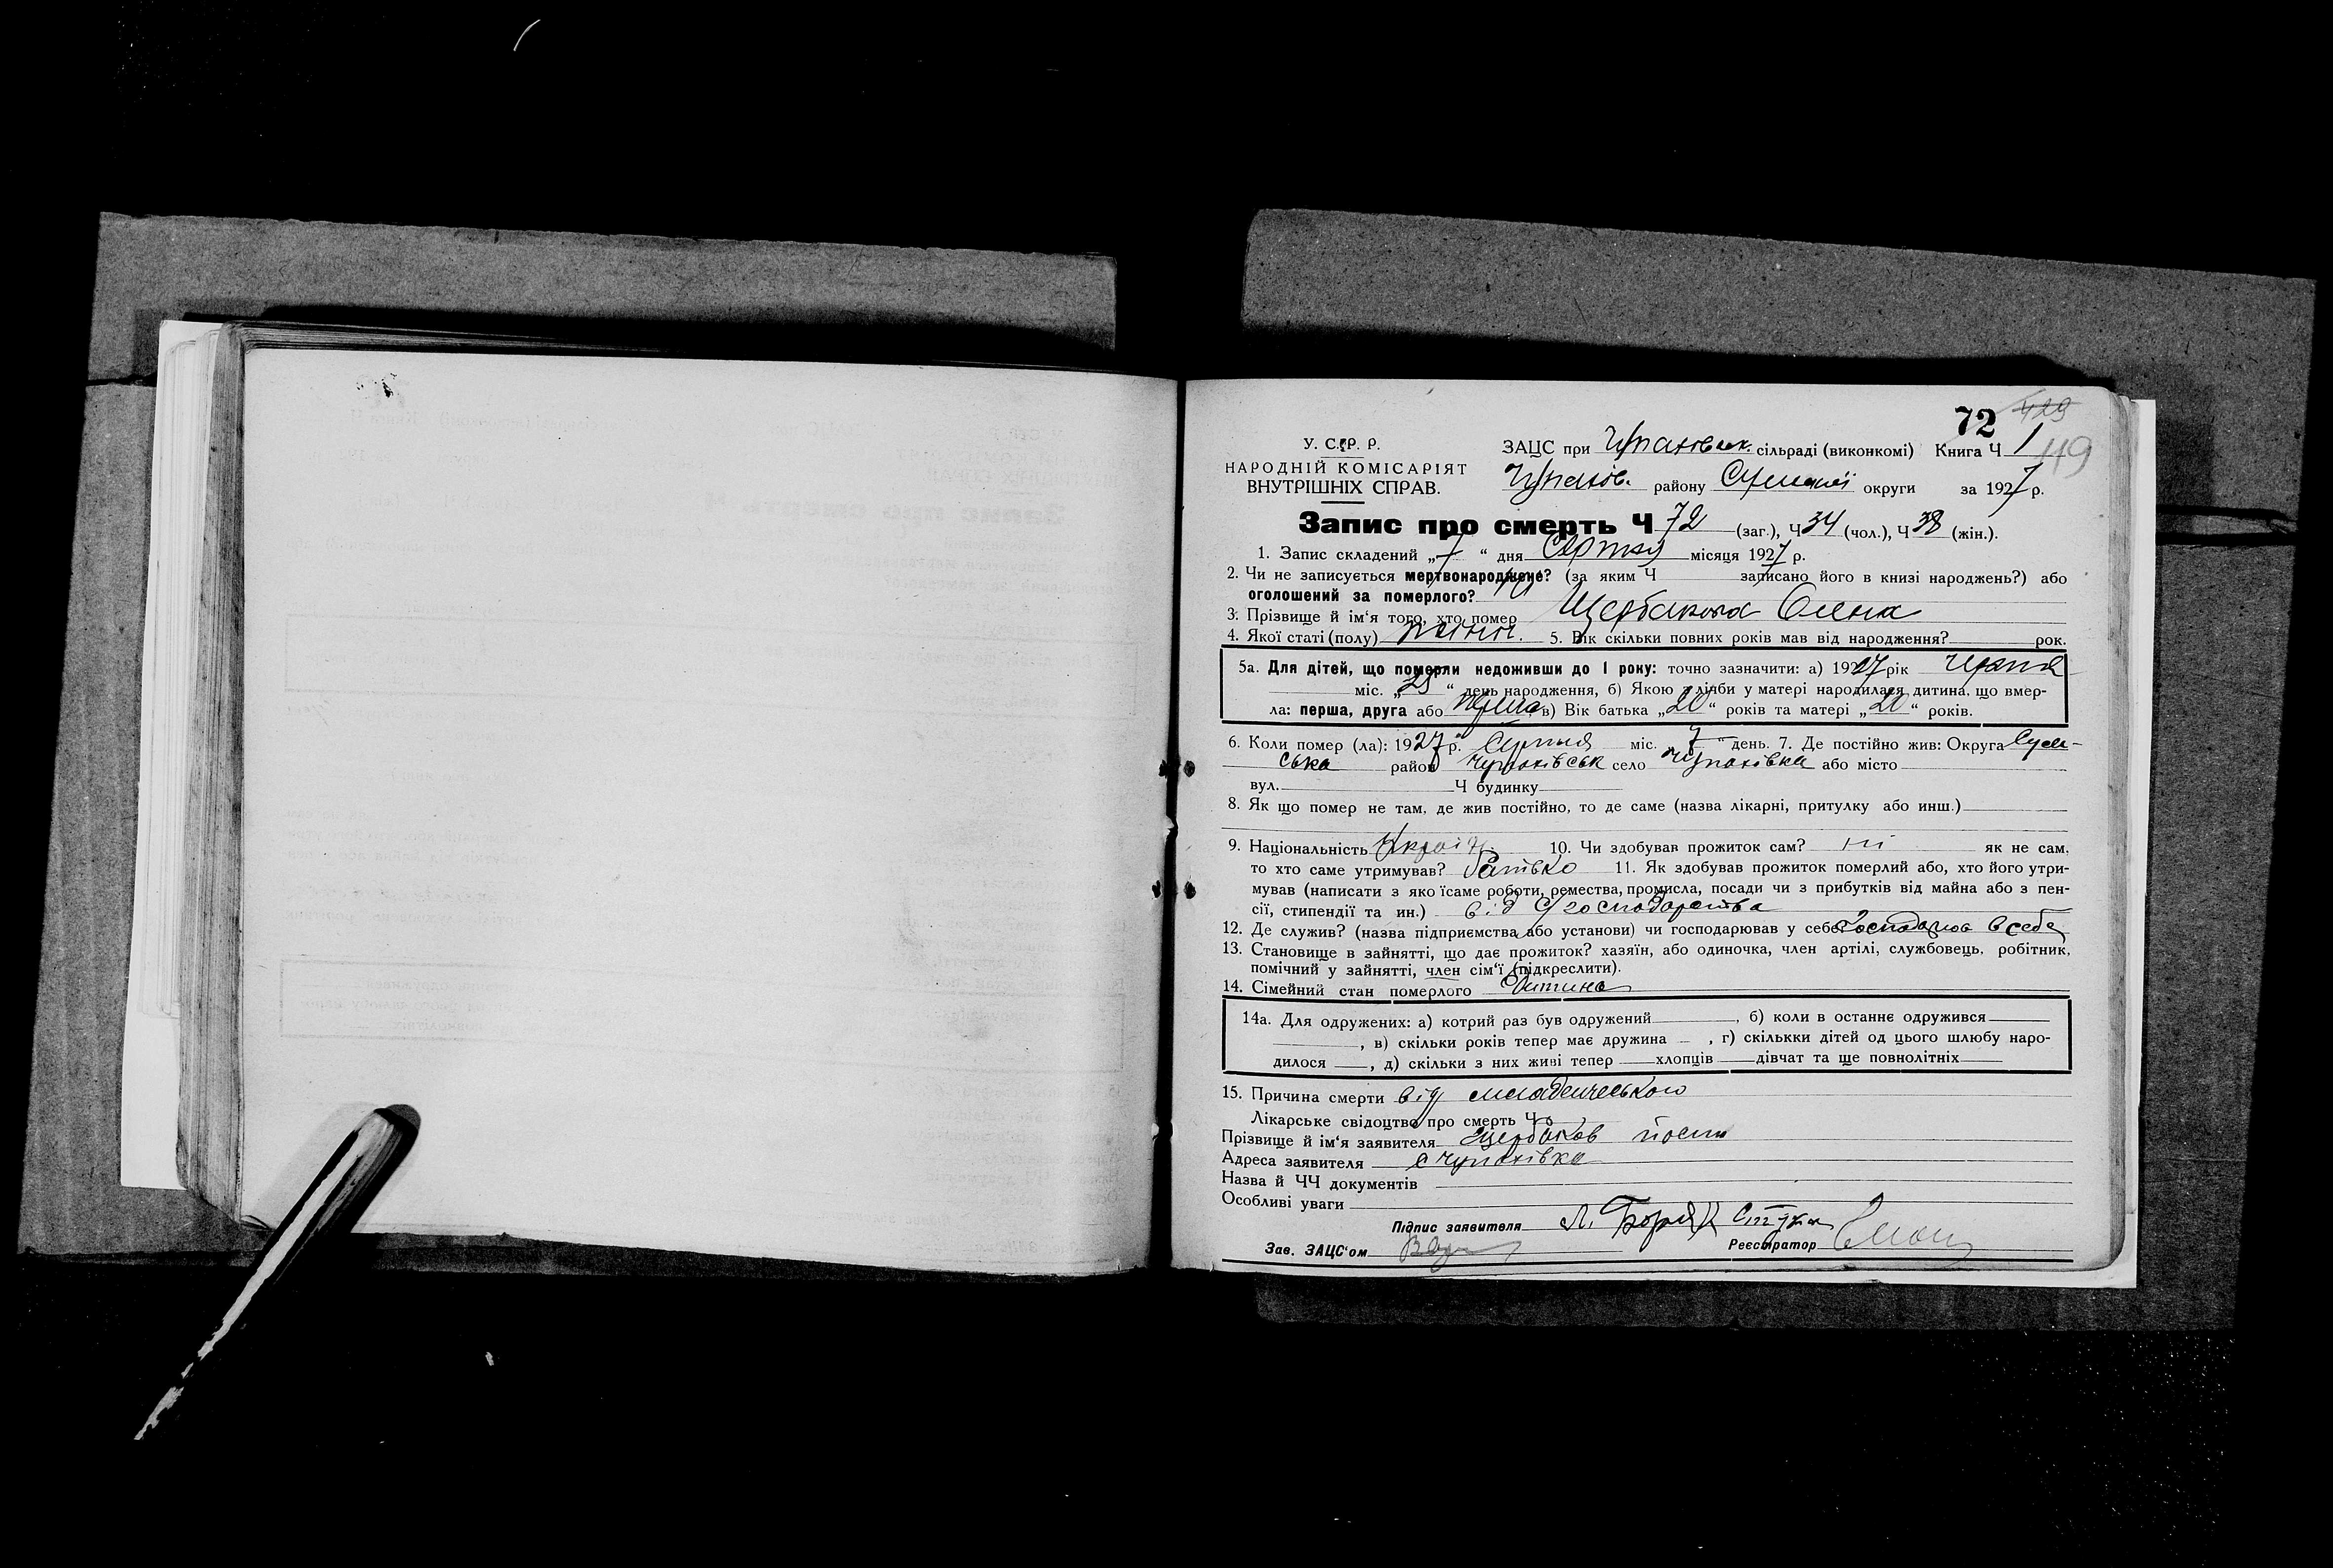 72 429
У. С. Р. Р. ЗАЦС при Чупахівськ. сільраді (виконкомі) Книга Ч 1 119
НАРОДНІЙ КОМІСАРІЯТ
ВНУТРІШНІХ СПРАВ. Чупахів. району Сумської округи за 1927 р.
Запис про смерть Ч 72 (заг.), Ч 34 (чол.), Ч 38 (жін.).
1. Запис складений „7“ дня Серпня місяця 1927 р.
2. Чи не записується мертвонароджене? (за яким Ч записано його в книзі народжень?) або
оголошений за померлого? ні
3. Прізвище й ім‘я того, хто помер Щербакова Олена
4. Якої статі (полу) жіноч. 5. Вік скільки повних років мав від народження? рок.
5а. Для дітей, що померли недоживши до 1 року: точно зазначити: а) 1927 рік
міс. „25“ день народження, б) Якою з ліпби у матері народилася дитина, що вмер-
ла: перша, друга або перша в) Вік батька „20“ років та матері „20“ років.
6. Коли помер (ла): 1927 р. Серпня міс. „7“ день. 7. Де постійно жив: Округа Сум-
ська район Чупахівськ село Чупахівка або місто
вул. Ч будинку
8. Як що помер не там, де жив постійно, то де саме (назва лікарні, притулку або инш.)
9. Національність Україн. 10. Чи здобував прожиток сам? ні як не сам,
то хто саме утримував? Батько 11. Як здобував прожиток померлий або, хто його утри-
мував (написати з яко їсаме роботи, ремества, промисла, посади чи з прибутків від майна або з пен-
сії, стипендії та ин.) від с/господарства
12. Де служив? (назва підприємства або установи) чи господарював у себе? в себе
13. Становище в зайнятті, що дає прожиток? хазяїн, або одиночка, член артілі, службовець, робітник,
помічний у зайнятті, член сім‘ї (підкреслити).
14. Сімейний стан померлого Дитина
14а. Для одружених: а) котрий раз був одружений , б) коли в останнє одружився
, в) скільки років тепер має дружина , г) скількки дітей од цього шлюбу наро-
дилося , д) скільки з них живі тепер хлопців дівчат та ще повнолітніх
15. Причина смерти від младенческого
Лікарське свідоцтво про смерть Ч
Прізвище й ім‘я заявителя Щербаков
Адреса заявителя с Чупахівка
Назва й ЧЧ документів
Особливі уваги
Підпис заявителя
Зав. ЗАЦС‘ом Реєстратор